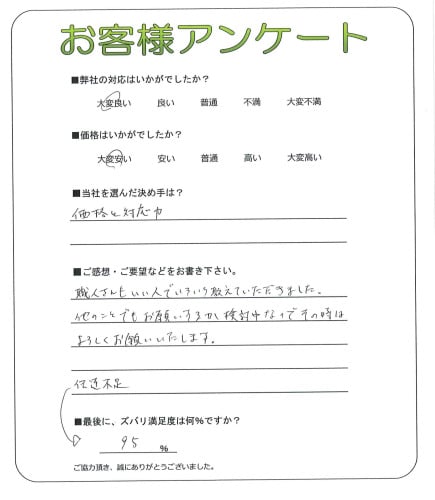 お客様アンケート
■弊社の対応はいかがでしたか？
大変良い 良い 普通 不満 大変不満
■価格はいかがでしたか？
大変安い 安い 普通 高い 大変高い
■当社を選んだ決め手は？
価格と対応力
■ご感想・ご要望などをお書き下さい。
職人さんもいい人でいろいろ教えていただきました。
他のことでもお願いするか検討中なのでその時は
よろしくお願いいたします。
伝達不足
■最後に、ズバリ満足度は何％ですか？
95 ％
ご協力頂き、誠にありがとうございました。